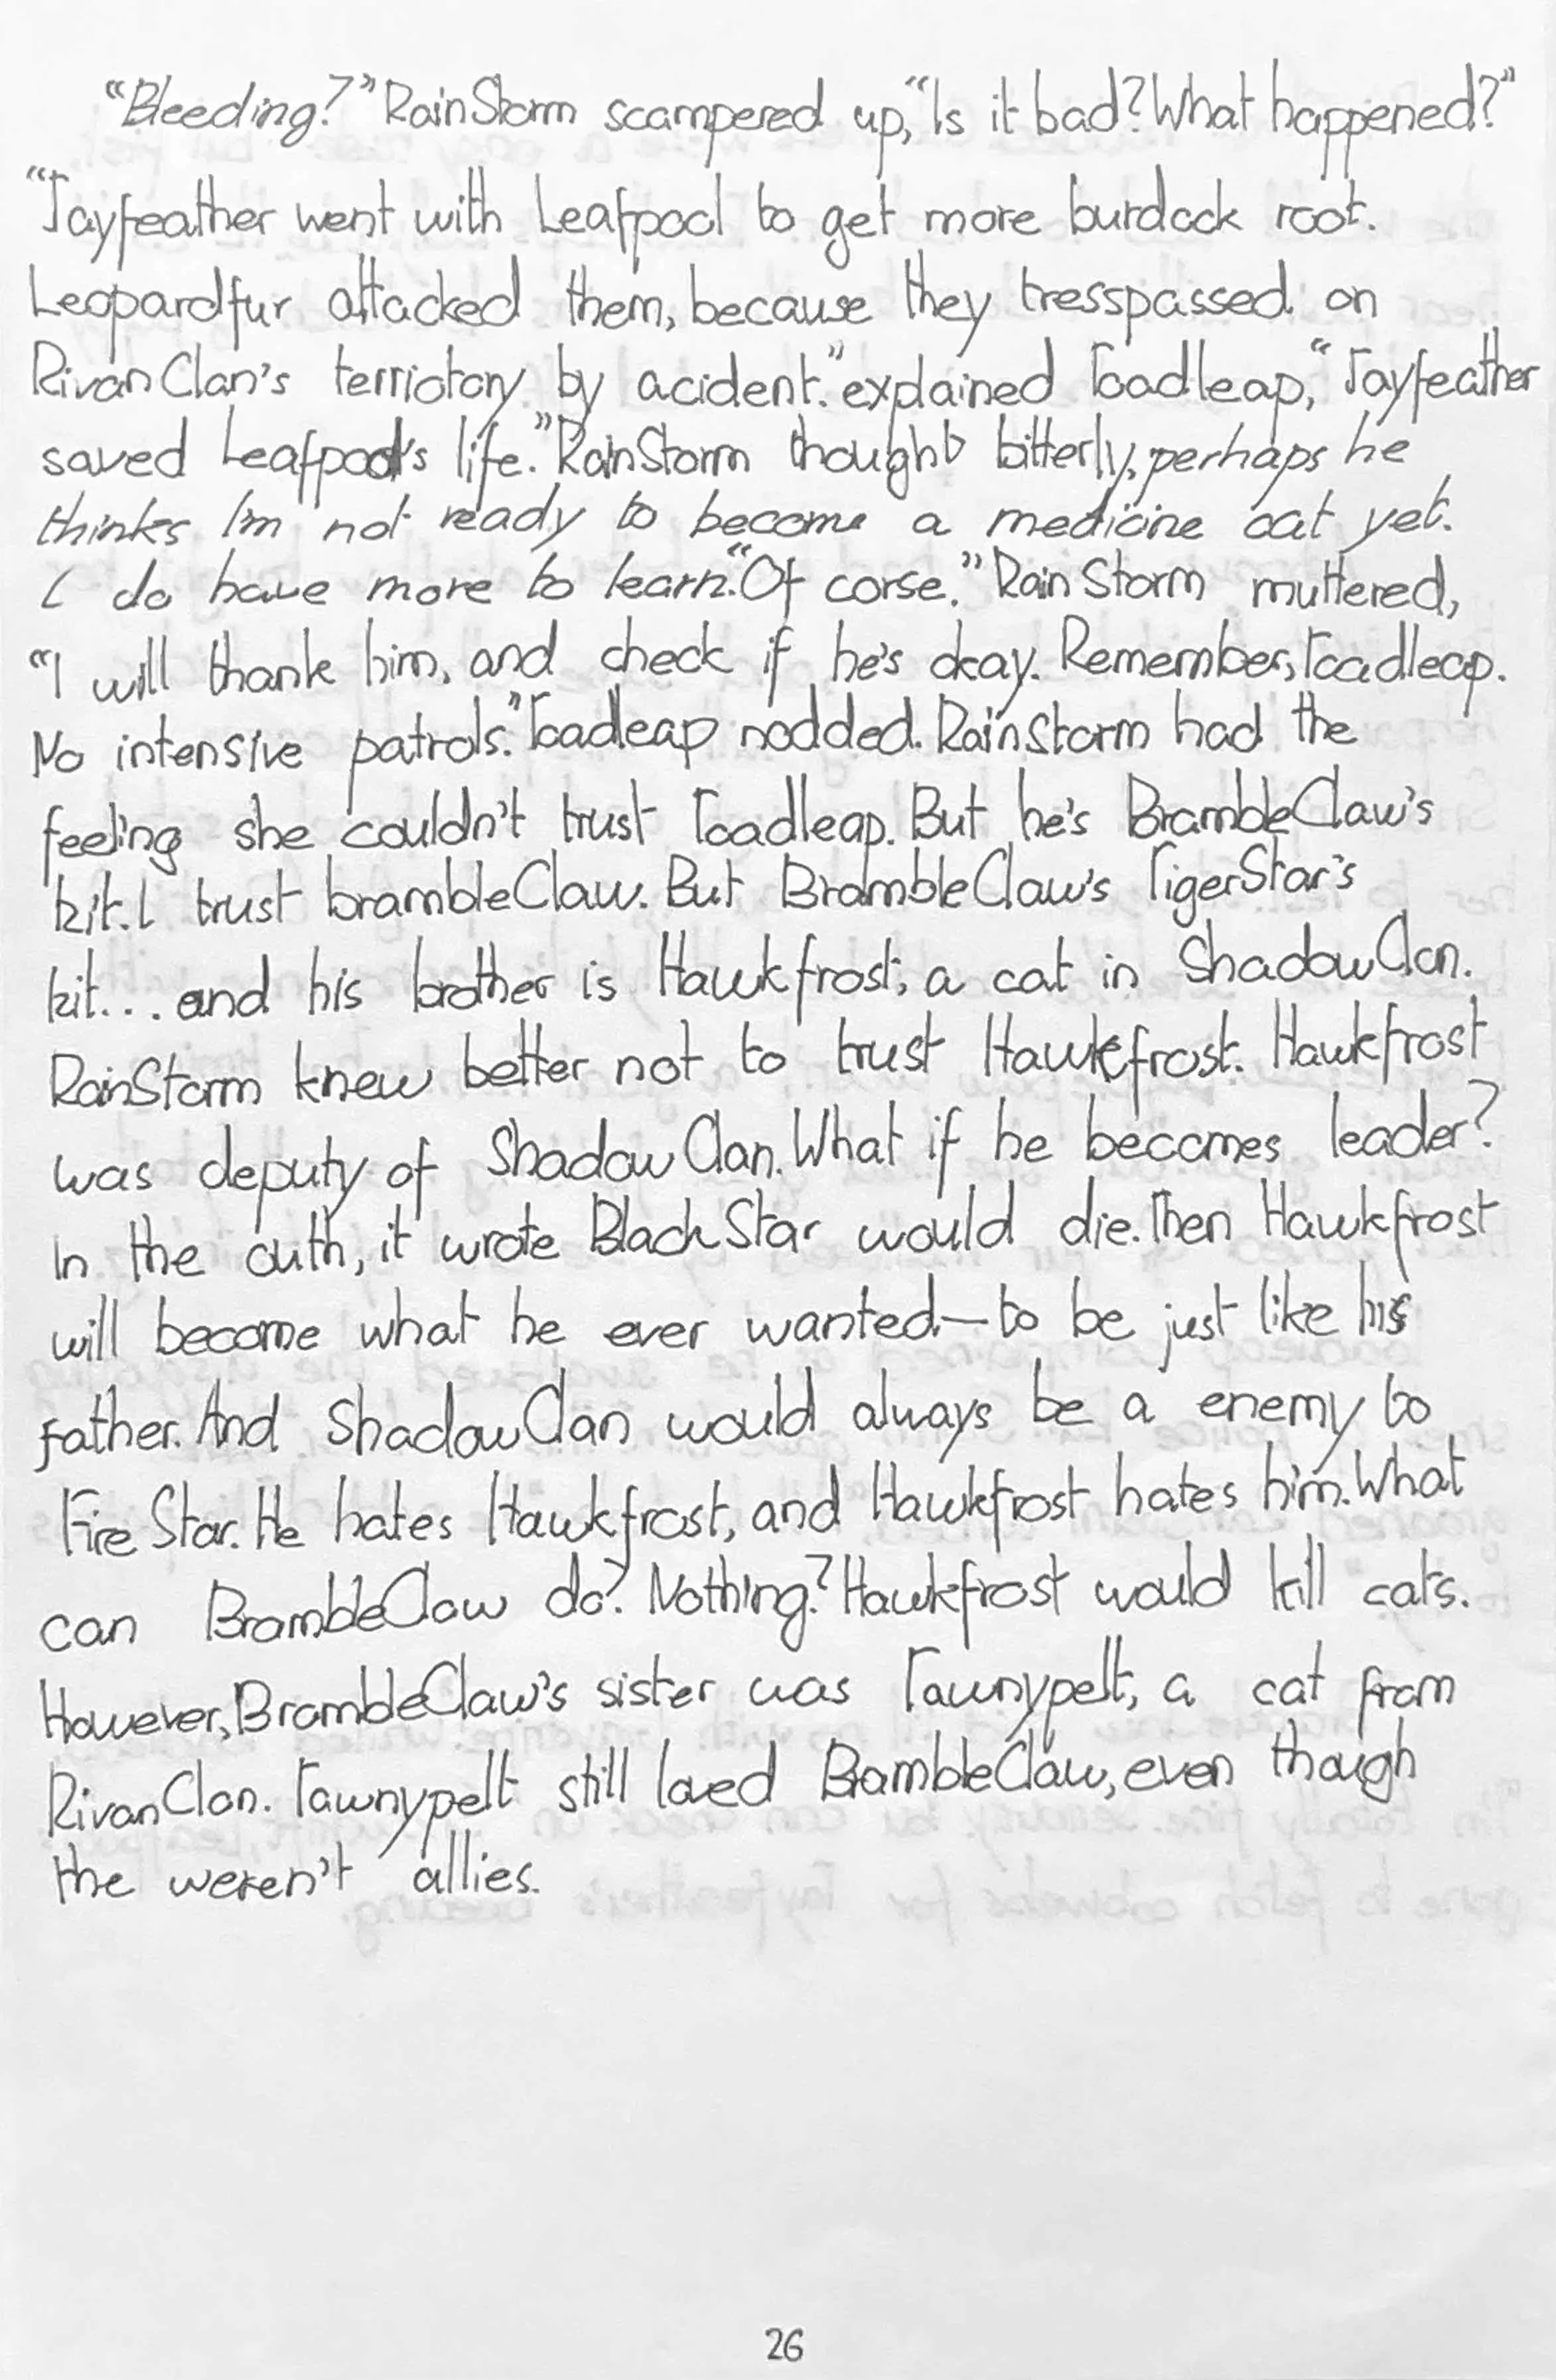 "Bleeding?" RainStorm scampered up, "Is it bad? What happened?"
"Jayfeather went with Leafpool to get more burdock root.
Leopardfur attacked them, because they tresspassed on
RivanClan's terriotory by acident." explained Toadleap, "Jayfeather
saved Leafpool's life." RainStorm thought bitterly, perhaps he
thinks I'm not ready to become a medicine cat yet.
I do have more to learn. "Of corse." RainStorm muttered,
"I will thank him, and check if he's okay. Remember, Toadleap.
No intensive patrols." Toadleap nodded. RainStorm had the
feeling she couldn't trust Toadleap. But he's BrambleClaw's
kit. I trust brambleClaw. But BrambleClaw's TigerStar's
kit... and his brother is Hawkfrost, a cat in ShadowClan.
RainStorm knew better not to trust Hawkfrost. Hawkfrost
was deputy of ShadowClan. What if he becomes leader?
In the outh, it wrote BlackStar would die. Then Hawkfrost
will become what he ever wanted—to be just like his
father. And ShadowClan would always be a enemy to
FireStar. He hates Hawkfrost, and Hawkfrost hates him. What
can BrambleClaw do? Nothing? Hawkfrost would kill cats.
However, BrambleClaw's sister was Tawnypelt, a cat from
RivanClan. Tawnypelt still loved BrambleClaw, even though
the weren't allies.
26